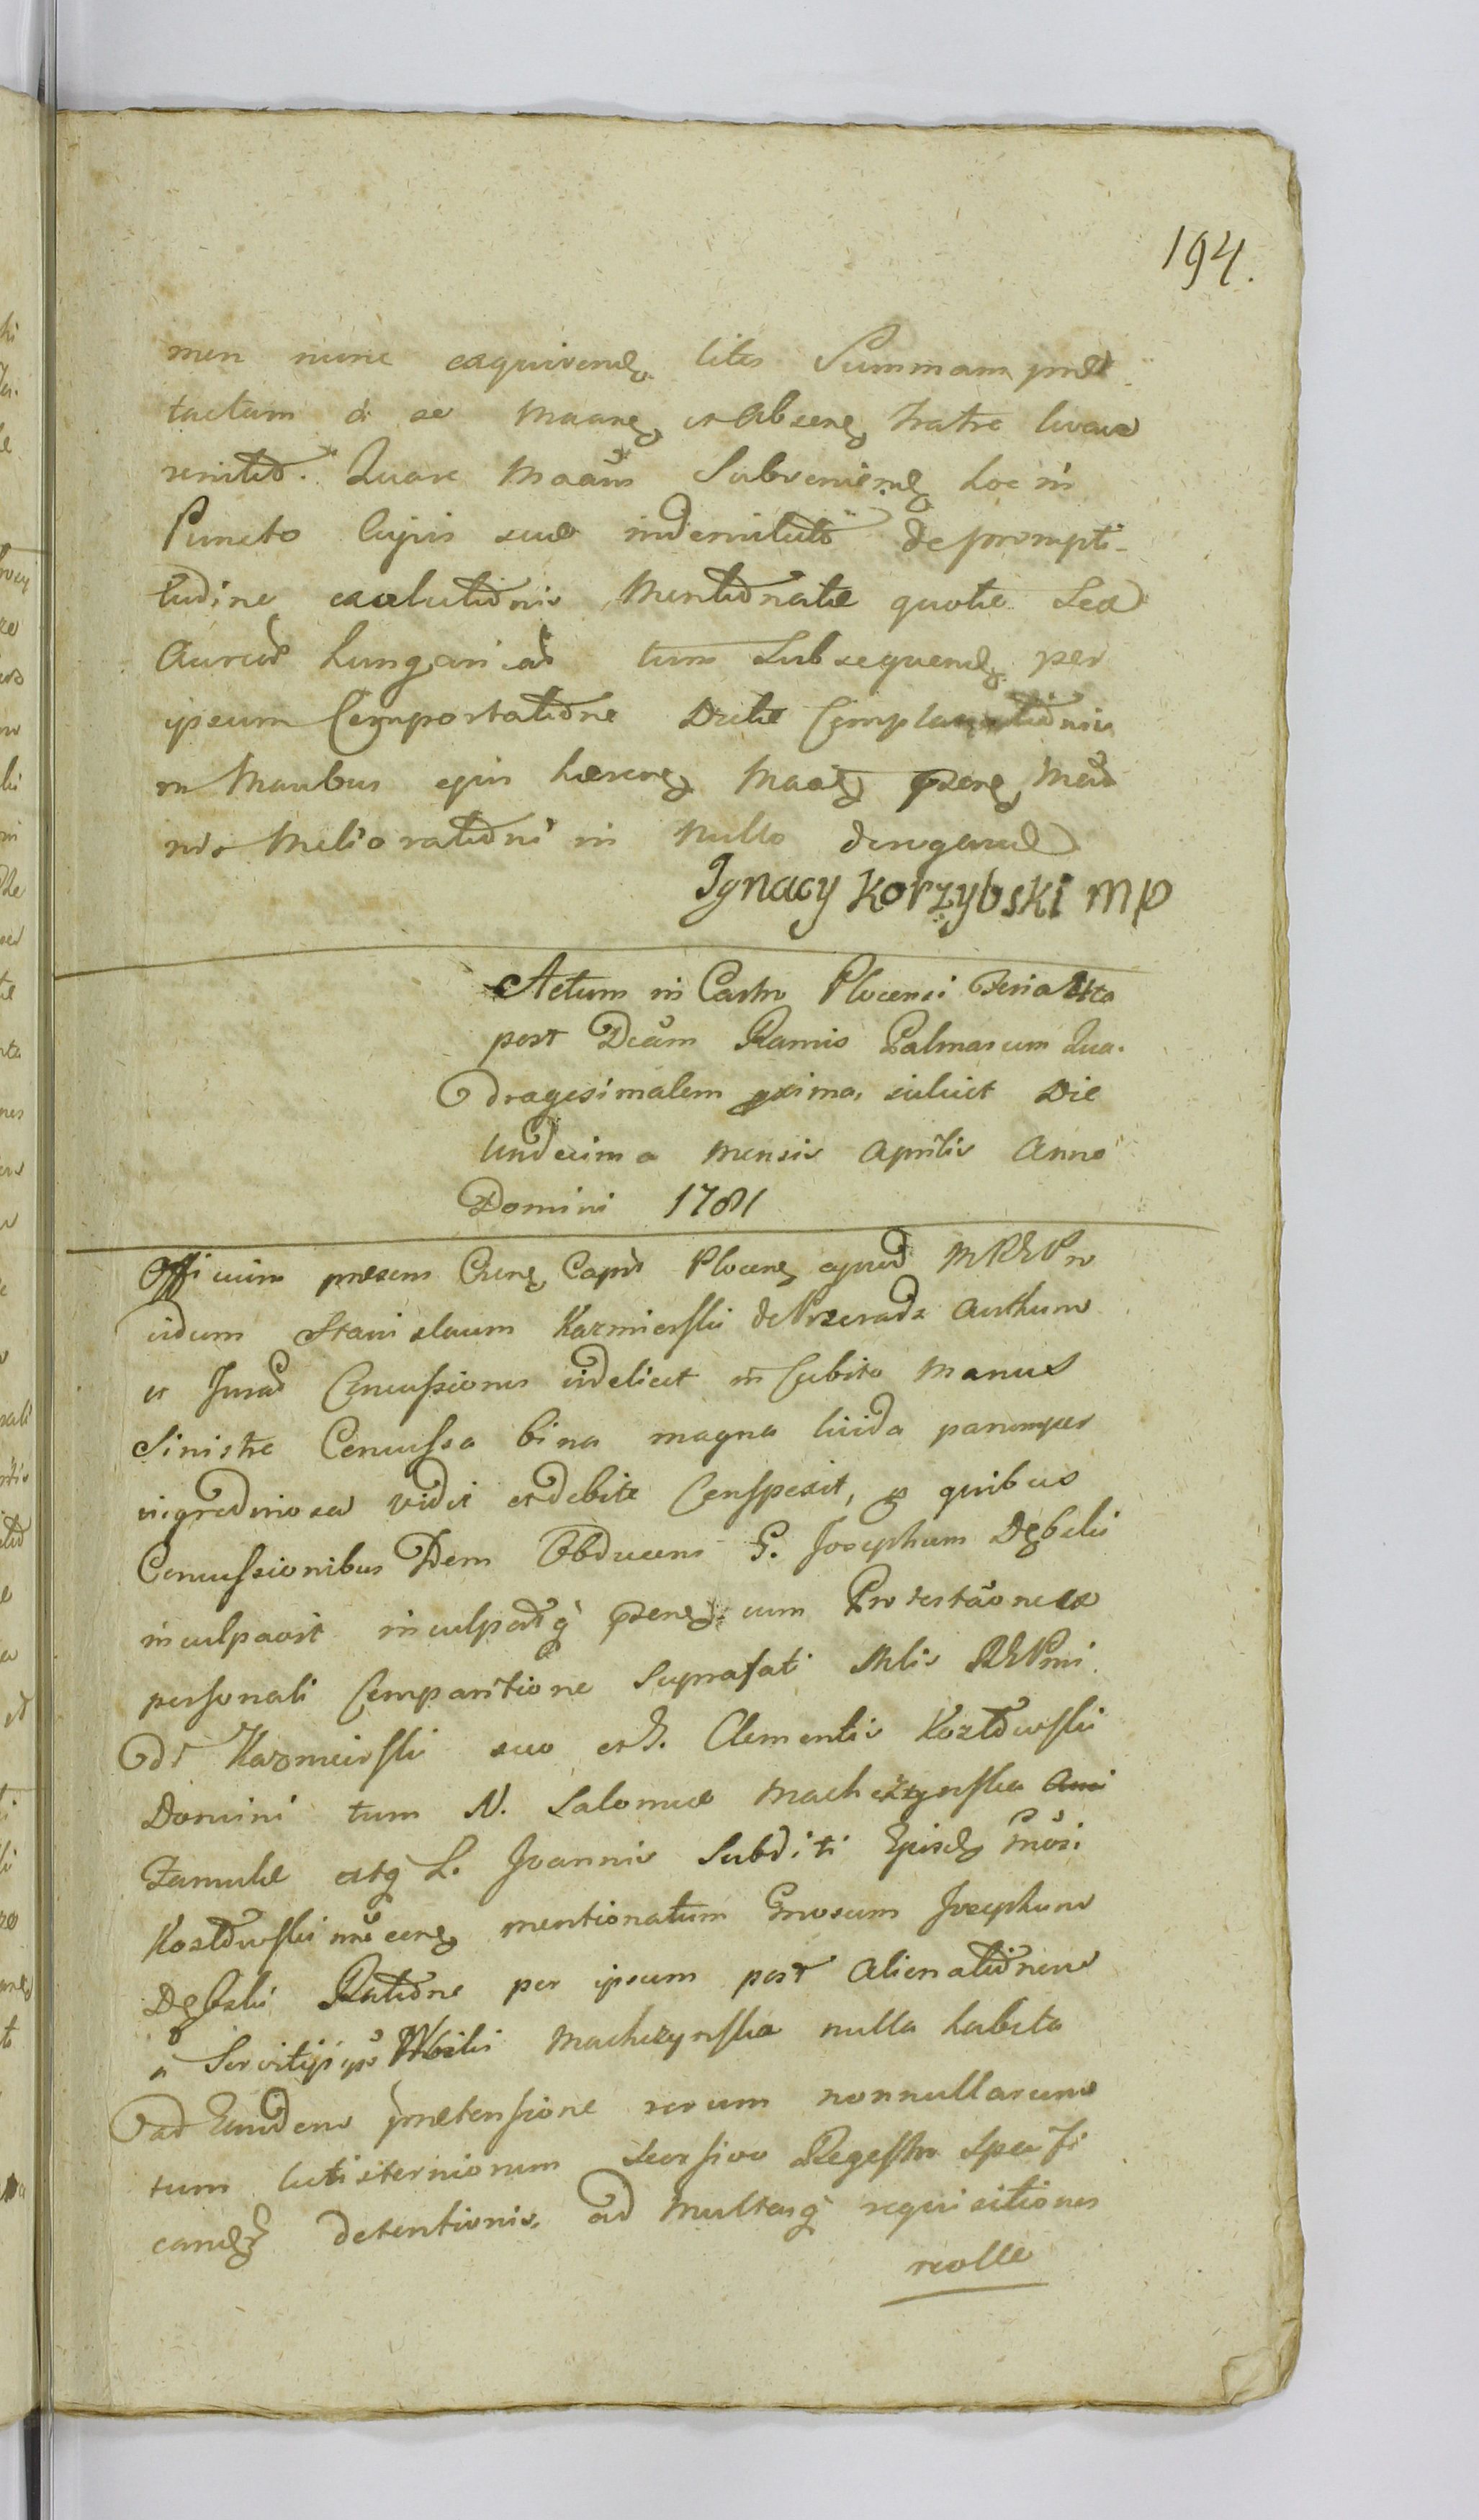 194.
men nunc exquirend lites Summam præ
tactam à se Maane et absene Fratre levare
renited. Quare Maans Subveniend hoc in
Puncto lujus suæ indemnitati de prompti-
tudine exolutionis Mentionatæ quotæ Sex
Aureor hungarical tum Subsequend per
ipsum Comportatione Dictæ Complanationis
in Manibus ejus hærene Maate præne Man
nis Meliorationi in Nullo derogand
Ignacy Korzybski mp
Actum in Castro Plocensi Feria 4ta
post Dcam Ramis Palmarum Qua-
dragesimalem pxima, scilicet Die
Undecima Mensis Aprilis Anno
Domini 1781
Officium præsens Crene Capit Plocene apud MREPro
vidum Stanislaum Kazmierski de Przeradz Authum
et Jurad Concussiones videlicet in Cubito Manus
Sinistræ Concussa bina magna livida parumper
nigredinosa vidit et debite Conspexit, pro quibus
Concussionibus Idem Obducens G. Josephum Dębski
inculpavit inculpatq præne cum Protestaone ex
personali Comparitione Suprafati Nblis REPmi
Kazmierski suo et G. Clementis Kozłowski
Domini tum N. Salomeæ Macherzynska
Famulæ atq L. Joannis Subditi Ejusd Gnosi
Kozłowski nne cone mentionatum Gnosum Josephum
Dębski Ratione per ipsum post alienationem
a Servitijs Nobilis Macherzynska nulla habita
ad Eundem prætensione rerum nonnullarum
tum lectisternionum seorsivo Regestro Specifi
cand detentionis, ad Multasq requisitiones
nolle